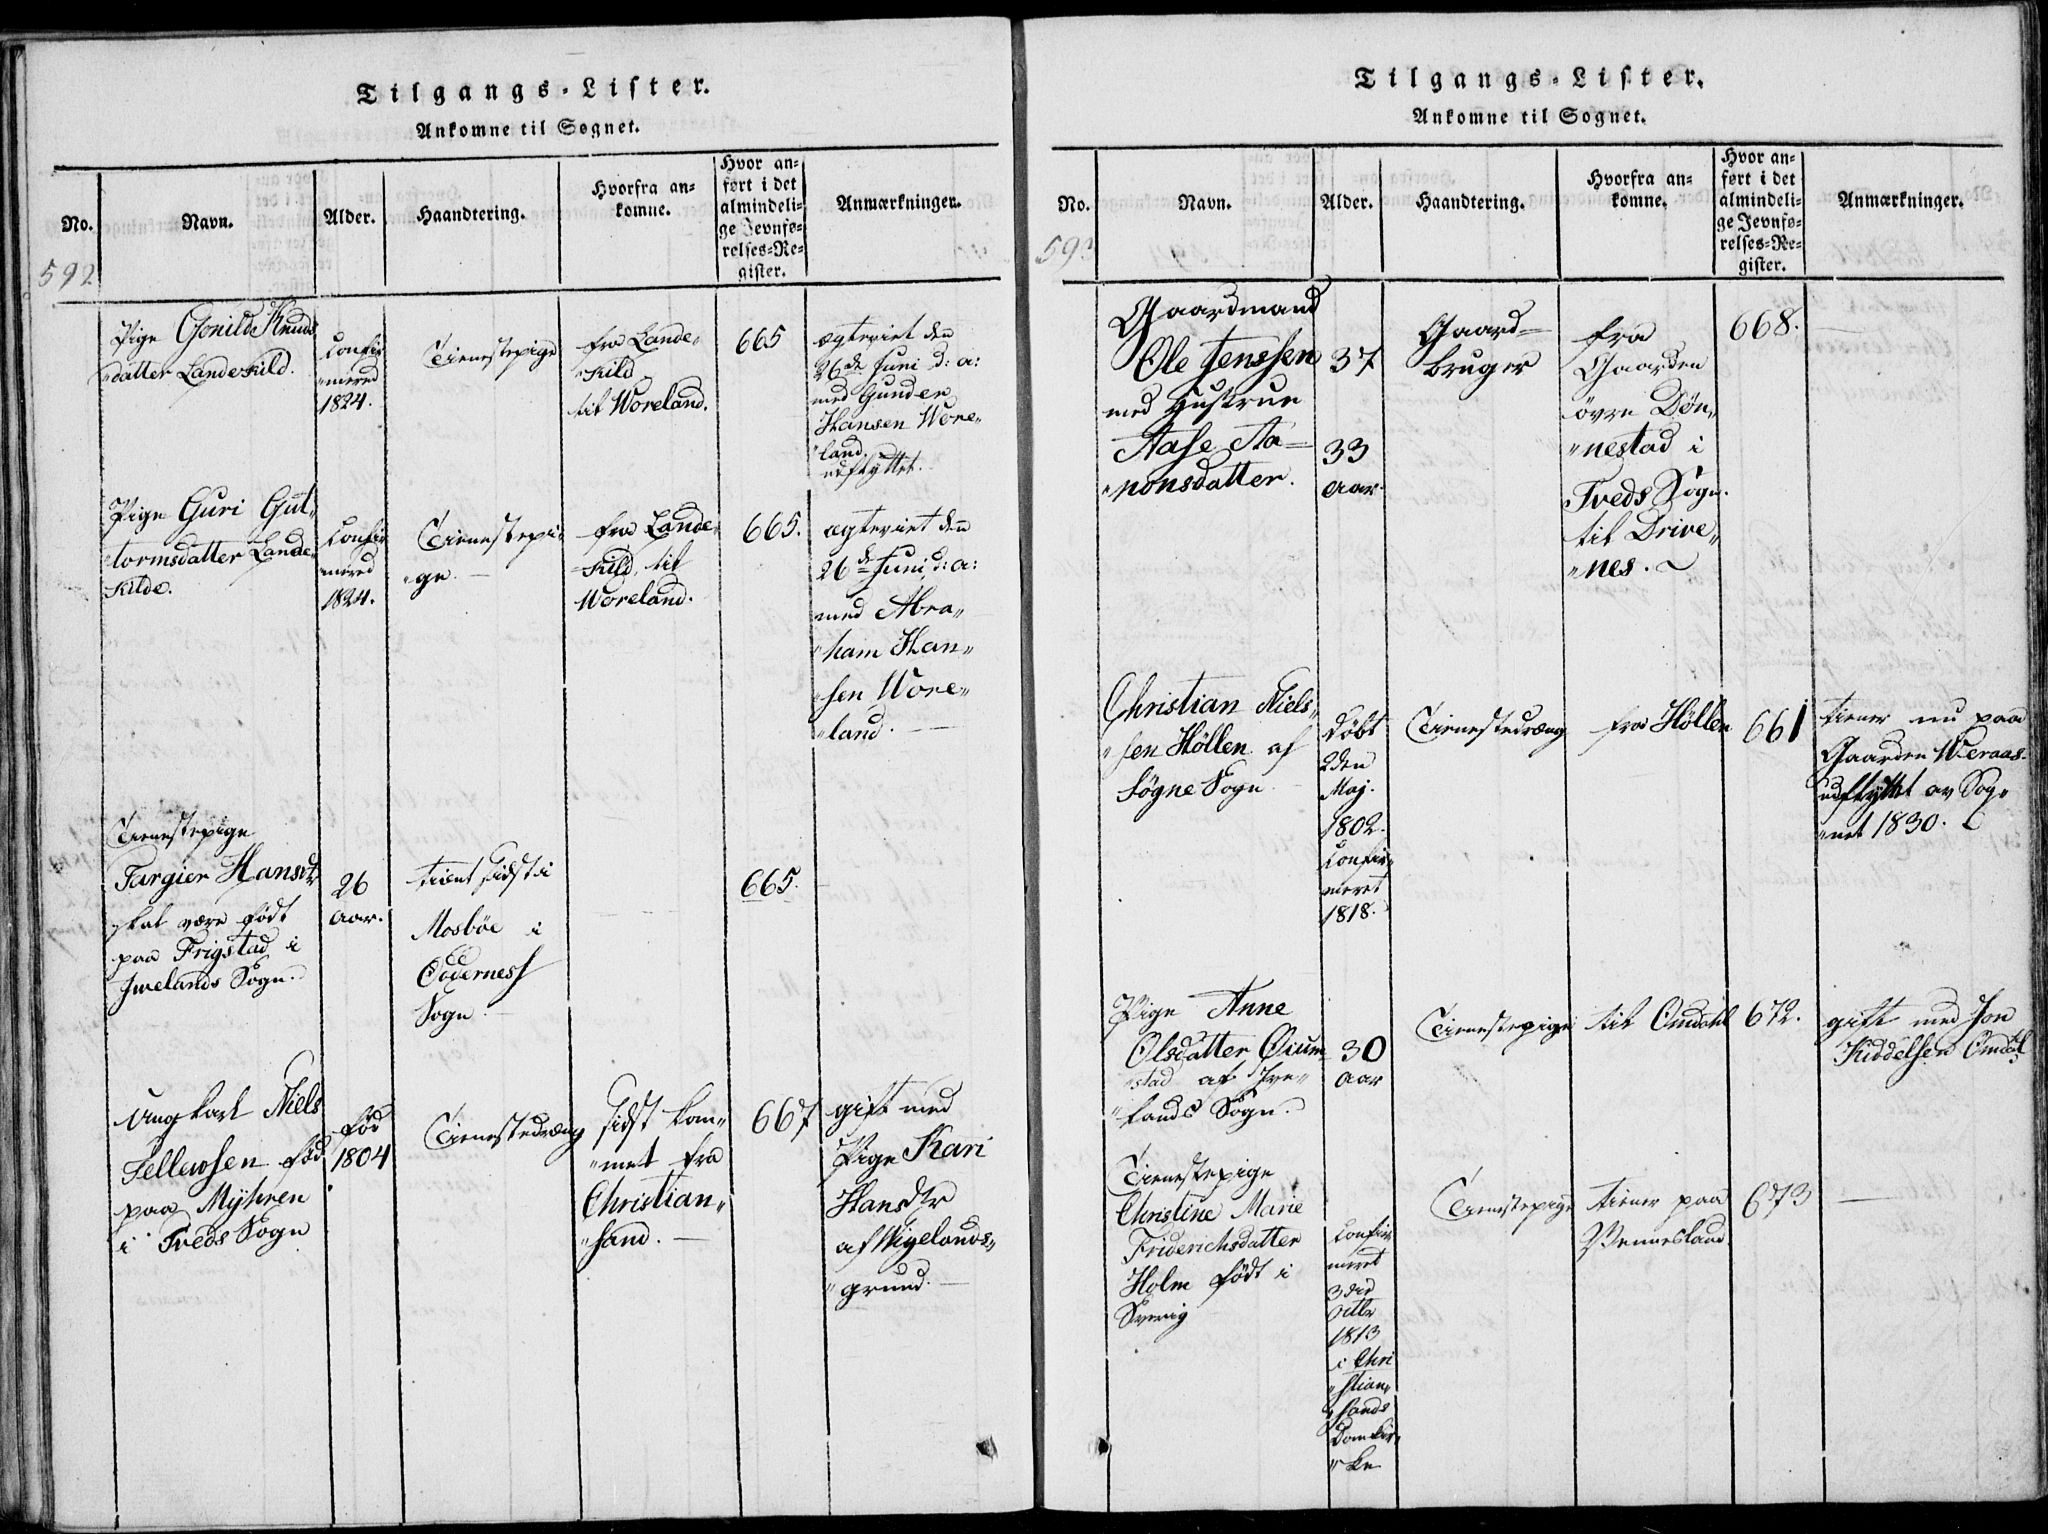 Tilgangs-Lister.
Ankomne til Sognet.
No.
Navn.
Alder.
Haandtering.
Hvorfra an-
komne.
Hvor an-
ført i det
almindeli-
ge Jevnfø-
relses-Re-
gister.
Anmærkninger.
592
Pige Gonild Knuds
datter Landekild.
Confir
mered
1824.
Tienestepige
fra Lande-
kild
til Woreland.
665
egteviet den
26de Juni d: a:
med Gunder
Hansen Wore-
land.
udflyttet.
Pige Guri Gut-
tormsdatter Lande-
kilde.
Confir
mered
1824.
Tienestepi-
ge.
fra Lande-
kild, til
Woreland.
665.
egteviet den
26de Juni d: a:
med Abra-
ham Han-
sen Wore-
land.
Tienestepige
Targier Hansdtr
skal være født
paa Frigstad i
Iwelands Sogn.
26
Aar.
tient sidst i
Mosböe i
Oddernes
Sogn
665.
Ung karl Niels
Tellewsen fød
paa Myhren
i Tveds Sogn
fød
1804
Tienestedreng
sidst kom-
met fra
Christian-
sand.
667
gift med
Pige Kari
Hansdtr
af Wigelands-
grund.
Tilgangs-Lister.
Ankomne til Sognet.
No.
Navn.
Alder.
Haandtering.
Hvorfra an-
komne.
Hvor an-
ført i det
almindeli-
ge Jevnfø-
relses-Re-
gister.
Anmærkninger.
593
Gaardmand
Ole Jenssen
med Hustrue
Aase Aa-
nonsdatter.
37
33
Aar.
Gaard-
bruger
fra
Gaarden
övre Døn-
nestad i
Tveds Sogn.
til Drive-
nes.
668.
Christian Niels-
sen Höllen af
Søgne Sogn
Døbt
2den
Maj.
1802.
Confir-
meret
1818.
Tienestedreng
fra Höllen
661
tiener nu paa
Gaarden Weraas.
udflyttet av Sog-
net 1830.
Pige Anne
Olsdatter Øium-
stad af Ive-
lands Sogn.
30
Aar
Tienestepige
til Omdahl
672.
gift med Jon
Kiddelsen Omdal
Tienestepige
Christine Marie
Friderichsdatter
Holm født i
Sverig
Confir-
meret
3die
Octbr
1813
i Chri
stian-
sands
Domkir-
ke
Tienestepige
tiener paa
Wennesland
673